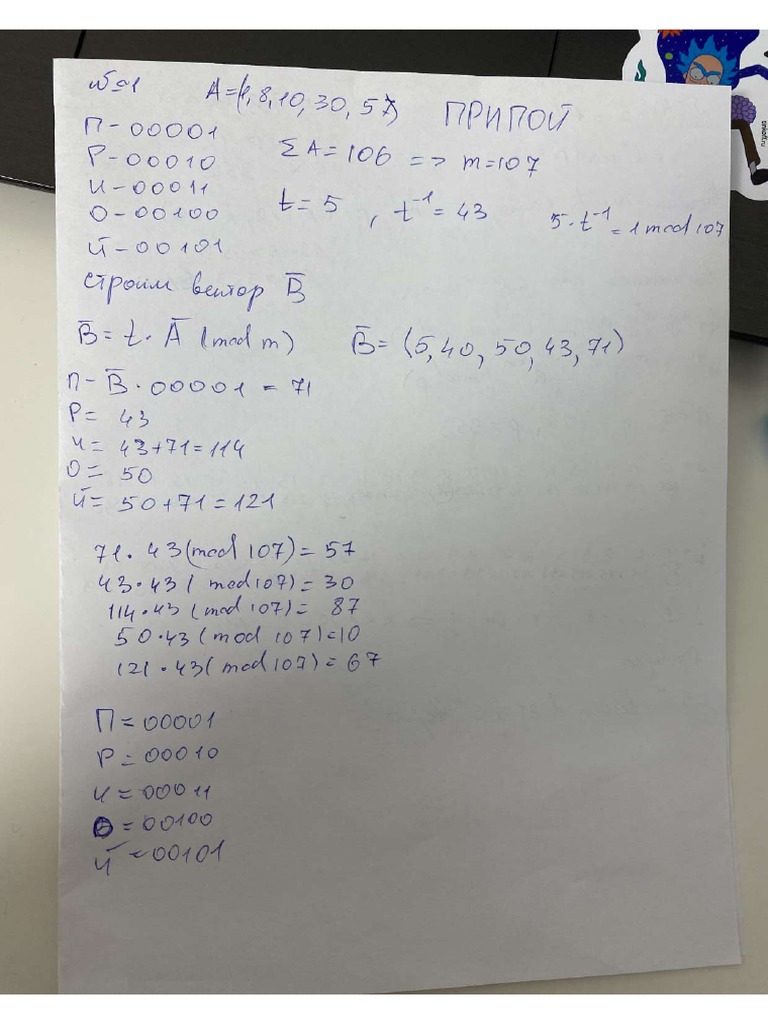 №1 A=(1, 8, 10, 30, 57) ПРИПОЙ
П-00001
Σ A = 106 => m=107
Р-00010
И-00011
t=5, t⁻¹ = 43 5·t⁻¹ = 1 mod 107
О-00100
Й-00101
Строим вектор B̅
B̅ = t · A̅ (mod m) B̅ = (5, 40, 50, 43, 71)
П- B̅ · 00001 = 71
Р= 43
И= 43+71=114
О= 50
Й= 50+71=121
71 · 43 (mod 107) = 57
43 · 43 (mod 107) = 30
114 · 43 (mod 107) = 87
50 · 43 (mod 107) = 10
121 · 43 (mod 107) = 67
П = 00001
Р = 00010
И = 00011
О = 00100
Й = 00101